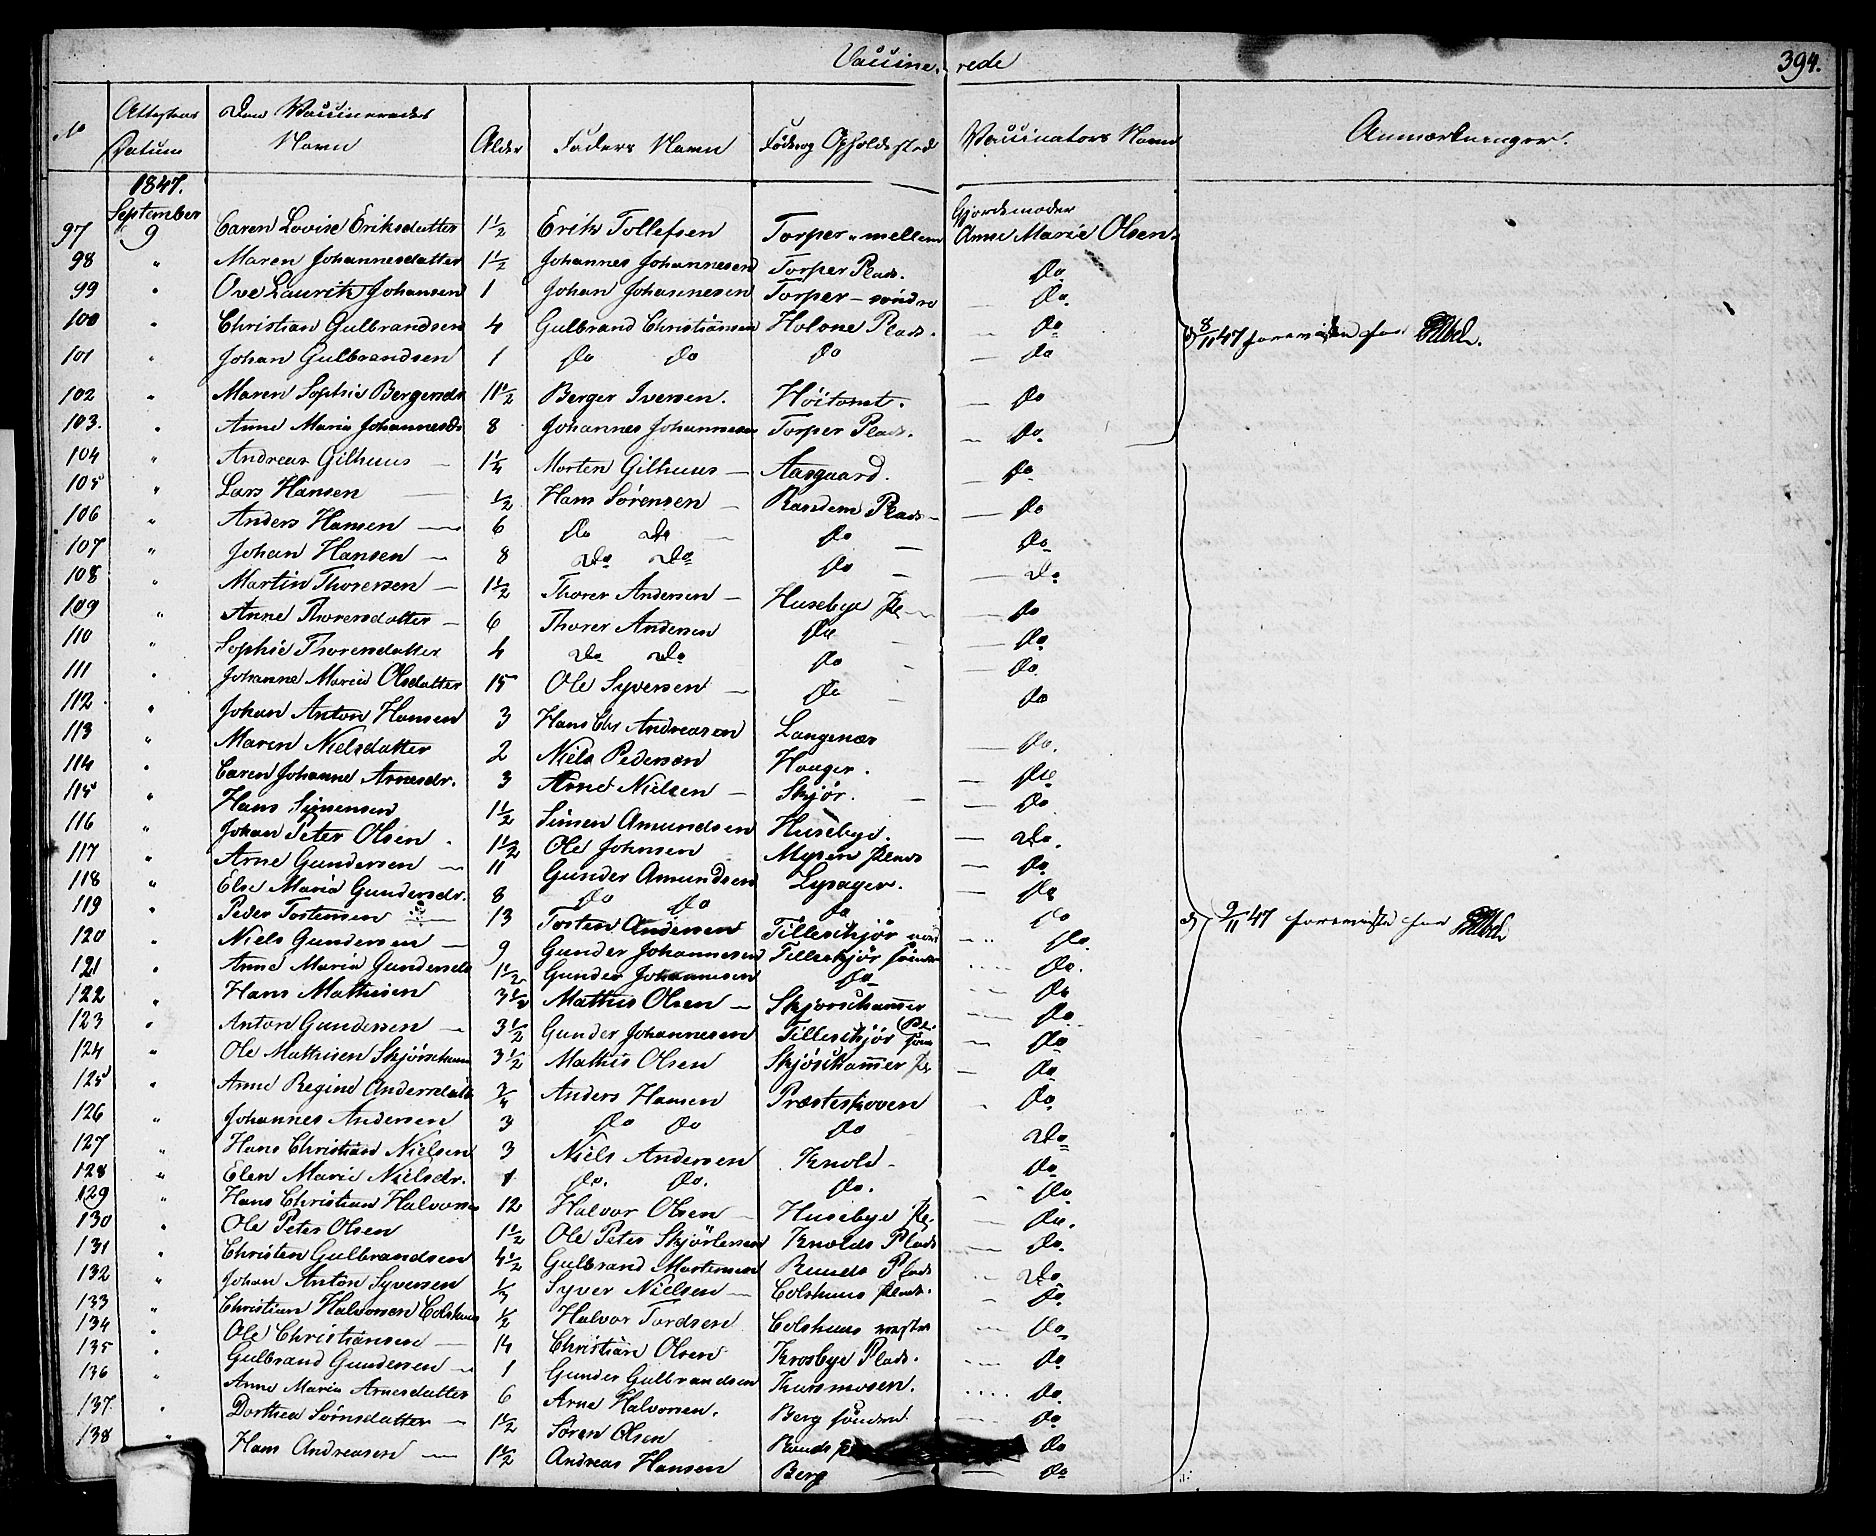 Vaccine- rede 394.
No Attestens Datum Den Vaccineredes Navn Alder Faders Navn Føde og Opholdssted Vaccinators Navn Anmærkninger.
1847.
September Gjordemoder
97 9 Caren Lovise Eriksdatter 1 1/2 Erik Tollefsen Torper mellem Anne Marie Olsen.
98 " Maren Johannesdatter 1 1/2 Johannes Johannesen Torper Plads. Do
99 " Ove Lauritz Johansen 1 Johan Johannesen Torper - søndre Do.
100 " Christian Gulbrandsen 4 Gulbrand Christiansen Holone Plads. Do 8/11 47
101 " Johan Gulbrandsen 1 Do Do Do Do
102 " Maren Sophie Bergersdr 11 1/2 Berger Iversen. Høitomt. Do
103. " Anne Maria Johannesdr 8 Johannes Johannesen Torper Plads. Do.
104 " Andreas Gilhuus 1 1/4 Morten Gilhuus Aasgaard. Do.
105 " Lars Hansen 1/2 Hans Sørensen Randem Plads Do
106 " Anders Hansen 6 Do Do Do Do
107 " Johan Hansen 8 Do Do Do Do
108 " Martin Thoresen 1 1/2 Thorer Andersen Husebye Pl Do
109 " Anne Thorersdatter 6 Thorer Andersen Do Do
110 " Sophie Thorersdatter 4 Do Do Do Do
111 " Johanne Maria Olsdatter 15 Ole Syversen Do Do
112. " Johan Anton Hansen 3 Hans Chr Andreasen Langenæs Do.
113 " Maren Nielsdatter 2 Niels Pedersen Houger. Do
114 " Caren Johanne Arnesdr. 3 Arne Nielsen Skjør. Do
115 " Hans Simensen 1 1/2 Simen Amundsen Husebye. Do.
116 " Johan Peter Olsen 1 1/2 Ole Johnsen Mysen Plads Do
117 " Arne Gundersen 11 Gunder Amundsen Lysager. Do
118 " Else Maria Gundersdr. 8 Do Do Do Do
119 " Peder Tostensen 13 Tosten Andersen Tilleskjør Do. 9/11 47
120 " Niels Gundersen 9 Gunder Johannesen Tilleskjør søndre Do.
121 " Anne Maria Gundersdr 1 1/2 Gunder Johannesen Do Do
122 " Hans Mathisen 3 1/2 Mathis Olsen Skjørshammer Do
123 " Anton Gundersen 3 1/2 Gunder Johannesen Tilleskjør Do
124 " Ole Mathisen Skjørsham 3 1/2 Mathis Olsen Skjørshammer Pl Do
125 " Anne Regine Andersdatt 3/4 Anders Hansen Præsteskoven Do
126 " Johannes Andersen 3 Do Do Do Do
127 " Hans Christian Nielsen 3 Niels Andersen Knold Do
128 " Elen Marie Nielsdr. 1 Do. Do. Do. Do
129 " Hans Christian Halvorsen 12 Halvor Olsen Husebye Pl. Do.
130 " Ole Peter Olsen 1 1/2 Ole Peter Knolds Plads Do.
131 " Christen Gulbrandsen 4 1/2 Gulbrand Mortensen Ruuds Plads Do
132 " Johan Anton Syversen 1/3 Syver Nielsen Colshuus Plads. Do.
133 " Christian Halvorsen Colshuus 1/2 Halvor Tordsen Colshuus vestre Do
134 " Ole Christiansen 14 Christian Olsen Krosbye Plads. Do
135 " Gulbrand Gundersen 1 Gunder Gulbrandsen Do.
136 " Anne Maria Arnesdatter 6 Arne Halvorsen. Berg søndre Do
137. " Dorthea Sørnsdatter 1 1/2 Søren Olsen Ruuds Do
138 " Hans Andreasen 1 1/2 Andreas Hansen Berg Do